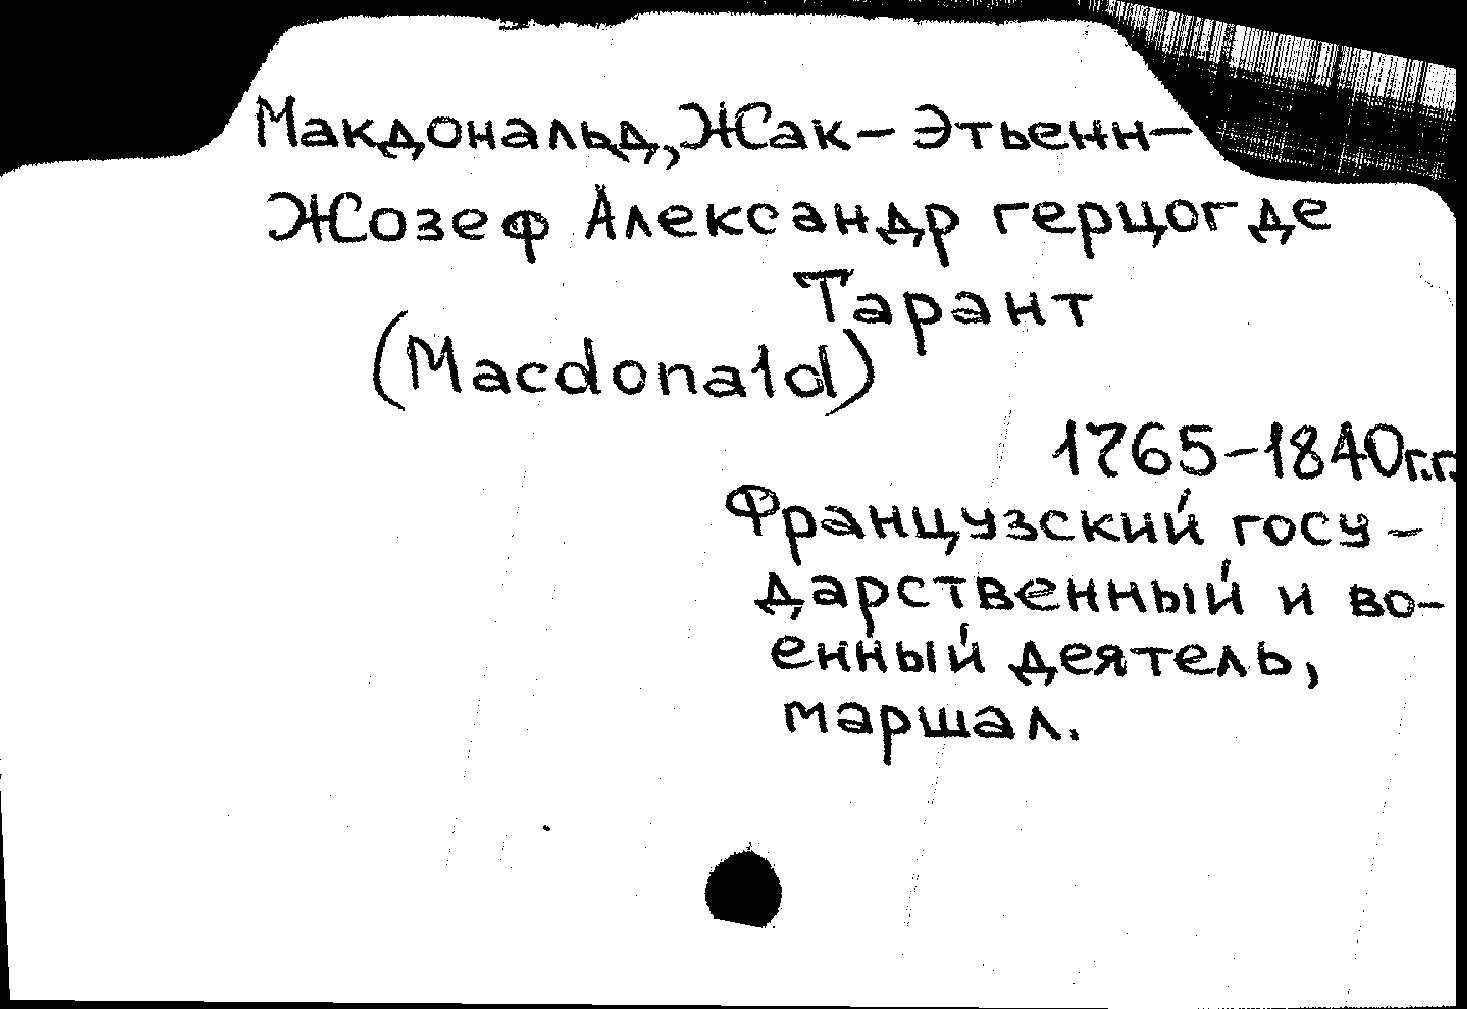 Макдональд, Жак-Этьенн-
Жозеф Александр герцог де
Тарант
(Macdonald)
1765-1840г.г.
Французский госу-
дарственный и во-
енный деятель,
маршал.